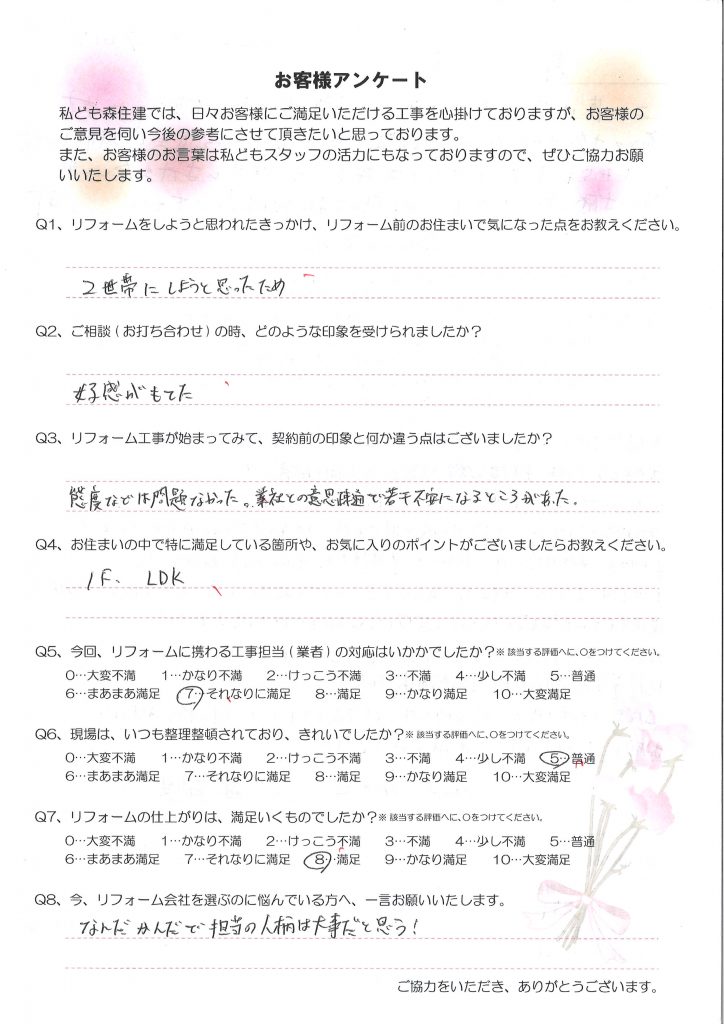 お客様アンケート
私ども森住建では、日々お客様にご満足いただける工事を心掛けておりますが、お客様の
ご意見を伺い今後の参考にさせて頂きたいと思っております。
また、お客様のお言葉は私どもスタッフの活力にもなっておりますので、ぜひご協力お願
いいたします。
Q1、リフォームをしようと思われたきっかけ、リフォーム前のお住まいで気になった点をお教えください。
2世帯にしようと思ったため
Q2、ご相談(お打ち合わせ)の時、どのような印象を受けられましたか?
好感がもてた
Q3、リフォーム工事が始まってみて、契約前の印象と何か違う点はございましたか?
態度などは問題なかった。業社との意思疎通で若干不安になるところがあった。
Q4、お住まいの中で特に満足している箇所や、お気に入りのポイントがございましたらお教えください。
1F、 LDK
Q5、今回、リフォームに携わる工事担当(業者)の対応はいかがでしたか?※該当する評価へに、○をつけてください。
0…大変不満 1…かなり不満 2…けっこう不満 3…不満 4…少し不満 5…普通
6…まあまあ満足 7…それなりに満足 8…満足 9…かなり満足 10…大変満足
Q6、現場は、いつも整理整頓されており、きれいでしたか?※該当する評価へに、○をつけてください。
0…大変不満 1…かなり不満 2…けっこう不満 3…不満 4…少し不満 5…普通
6…まあまあ満足 7…それなりに満足 8…満足 9…かなり満足 10…大変満足
Q7、リフォームの仕上がりは、満足いくものでしたか?※該当する評価へに、○をつけてください。
0…大変不満 1…かなり不満 2…けっこう不満 3…不満 4…少し不満 5…普通
6…まあまあ満足 7…それなりに満足 8…満足 9…かなり満足 10…大変満足
Q8、今、リフォーム会社を選ぶのに悩んでいる方へ、一言お願いいたします。
なんだかんだで担当の人柄は大事だと思う!
ご協力をいただき、ありがとうございます。